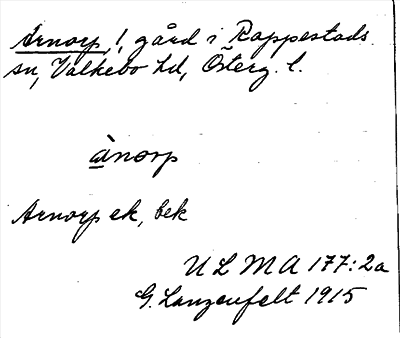 Arnorp, !, gård i Rappestads
sn, Valkebo hd, Österg. l.
ànorp
Arnorp ek, bek
ULMA 177:2a
G. Lanzenfelt 1915